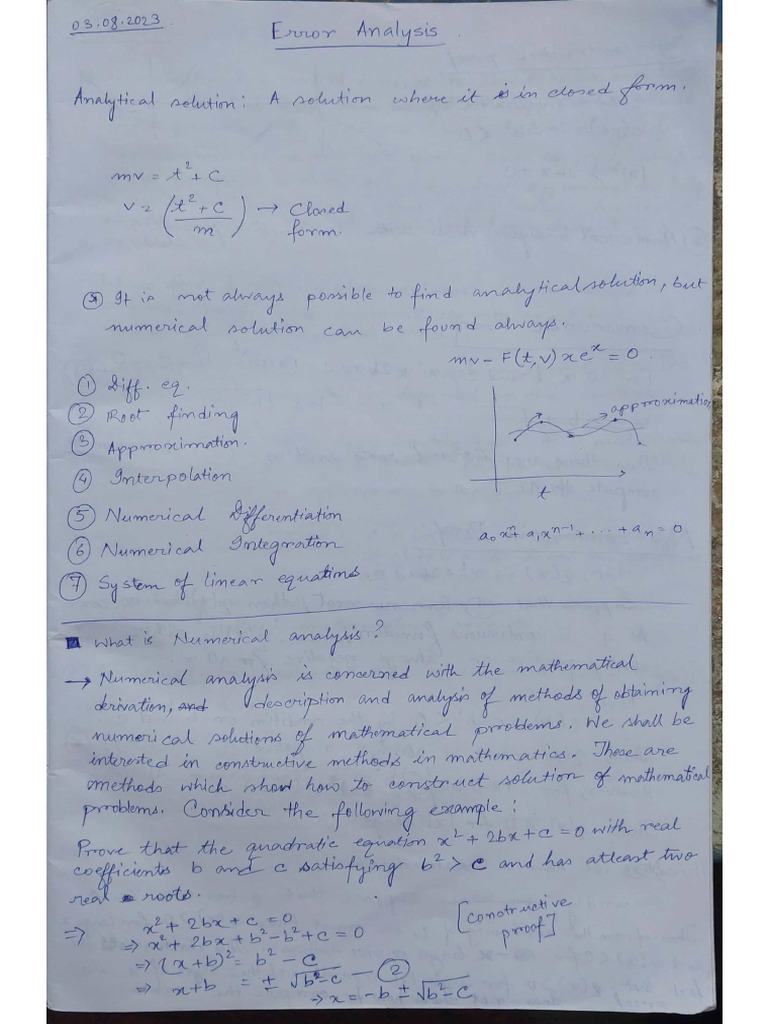 03.08.2023
Error Analysis
Analytical solution: A solution where it is in closed form.
mv = t² + c
v = (t² + c / m) → Closed form.
It is not always possible to find analytical solution, but
numerical solution can be found always.
mv - F(t, v) x e^x = 0.
① Diff. eq.
② Root finding
③ Approximation.
④ Interpolation
⑤ Numerical Differentiation
⑥ Numerical Integration
⑦ System of linear equations
approximation
t
a₀xⁿ + a₁xⁿ⁻¹ + ... + aₙ = 0
What is Numerical analysis?
→ Numerical analysis is concerned with the mathematical
derivation, description and analysis of methods of obtaining
numerical solutions of mathematical problems. We shall be
interested in constructive methods in mathematics. These are
methods which show how to construct solution of mathematical
problems. Consider the following example:
Prove that the quadratic equation x² + 2bx + c = 0 with real
coefficients b and c satisfying b² > c and has atleast two
real roots.
[constructive proof]
⇒ x² + 2bx + c = 0
⇒ x² + 2bx + b² - b² + c = 0
⇒ (x + b)² = b² - c
⇒ x + b = ± √b² - c — ②
⇒ x = -b ± √b² - c